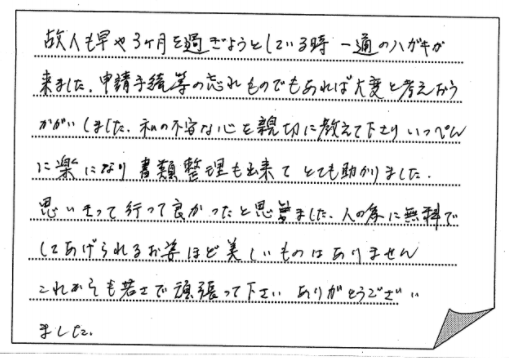 故人も早や3ヶ月を過ぎようとしている時 一通のハガキが
来ました、申請手続等の忘れものでもあれば大変と考えうか
かがいしました、私の不安な心を親切に教えて下さりいっぺん
に楽になり 書類整理も出来て とても助かりました、
思いきって行って良かったと思いました、人の為に無料で
してあげられるお姿ほど美しいものはありません
これからも若さで頑張って下さい ありがとうござい
ました。